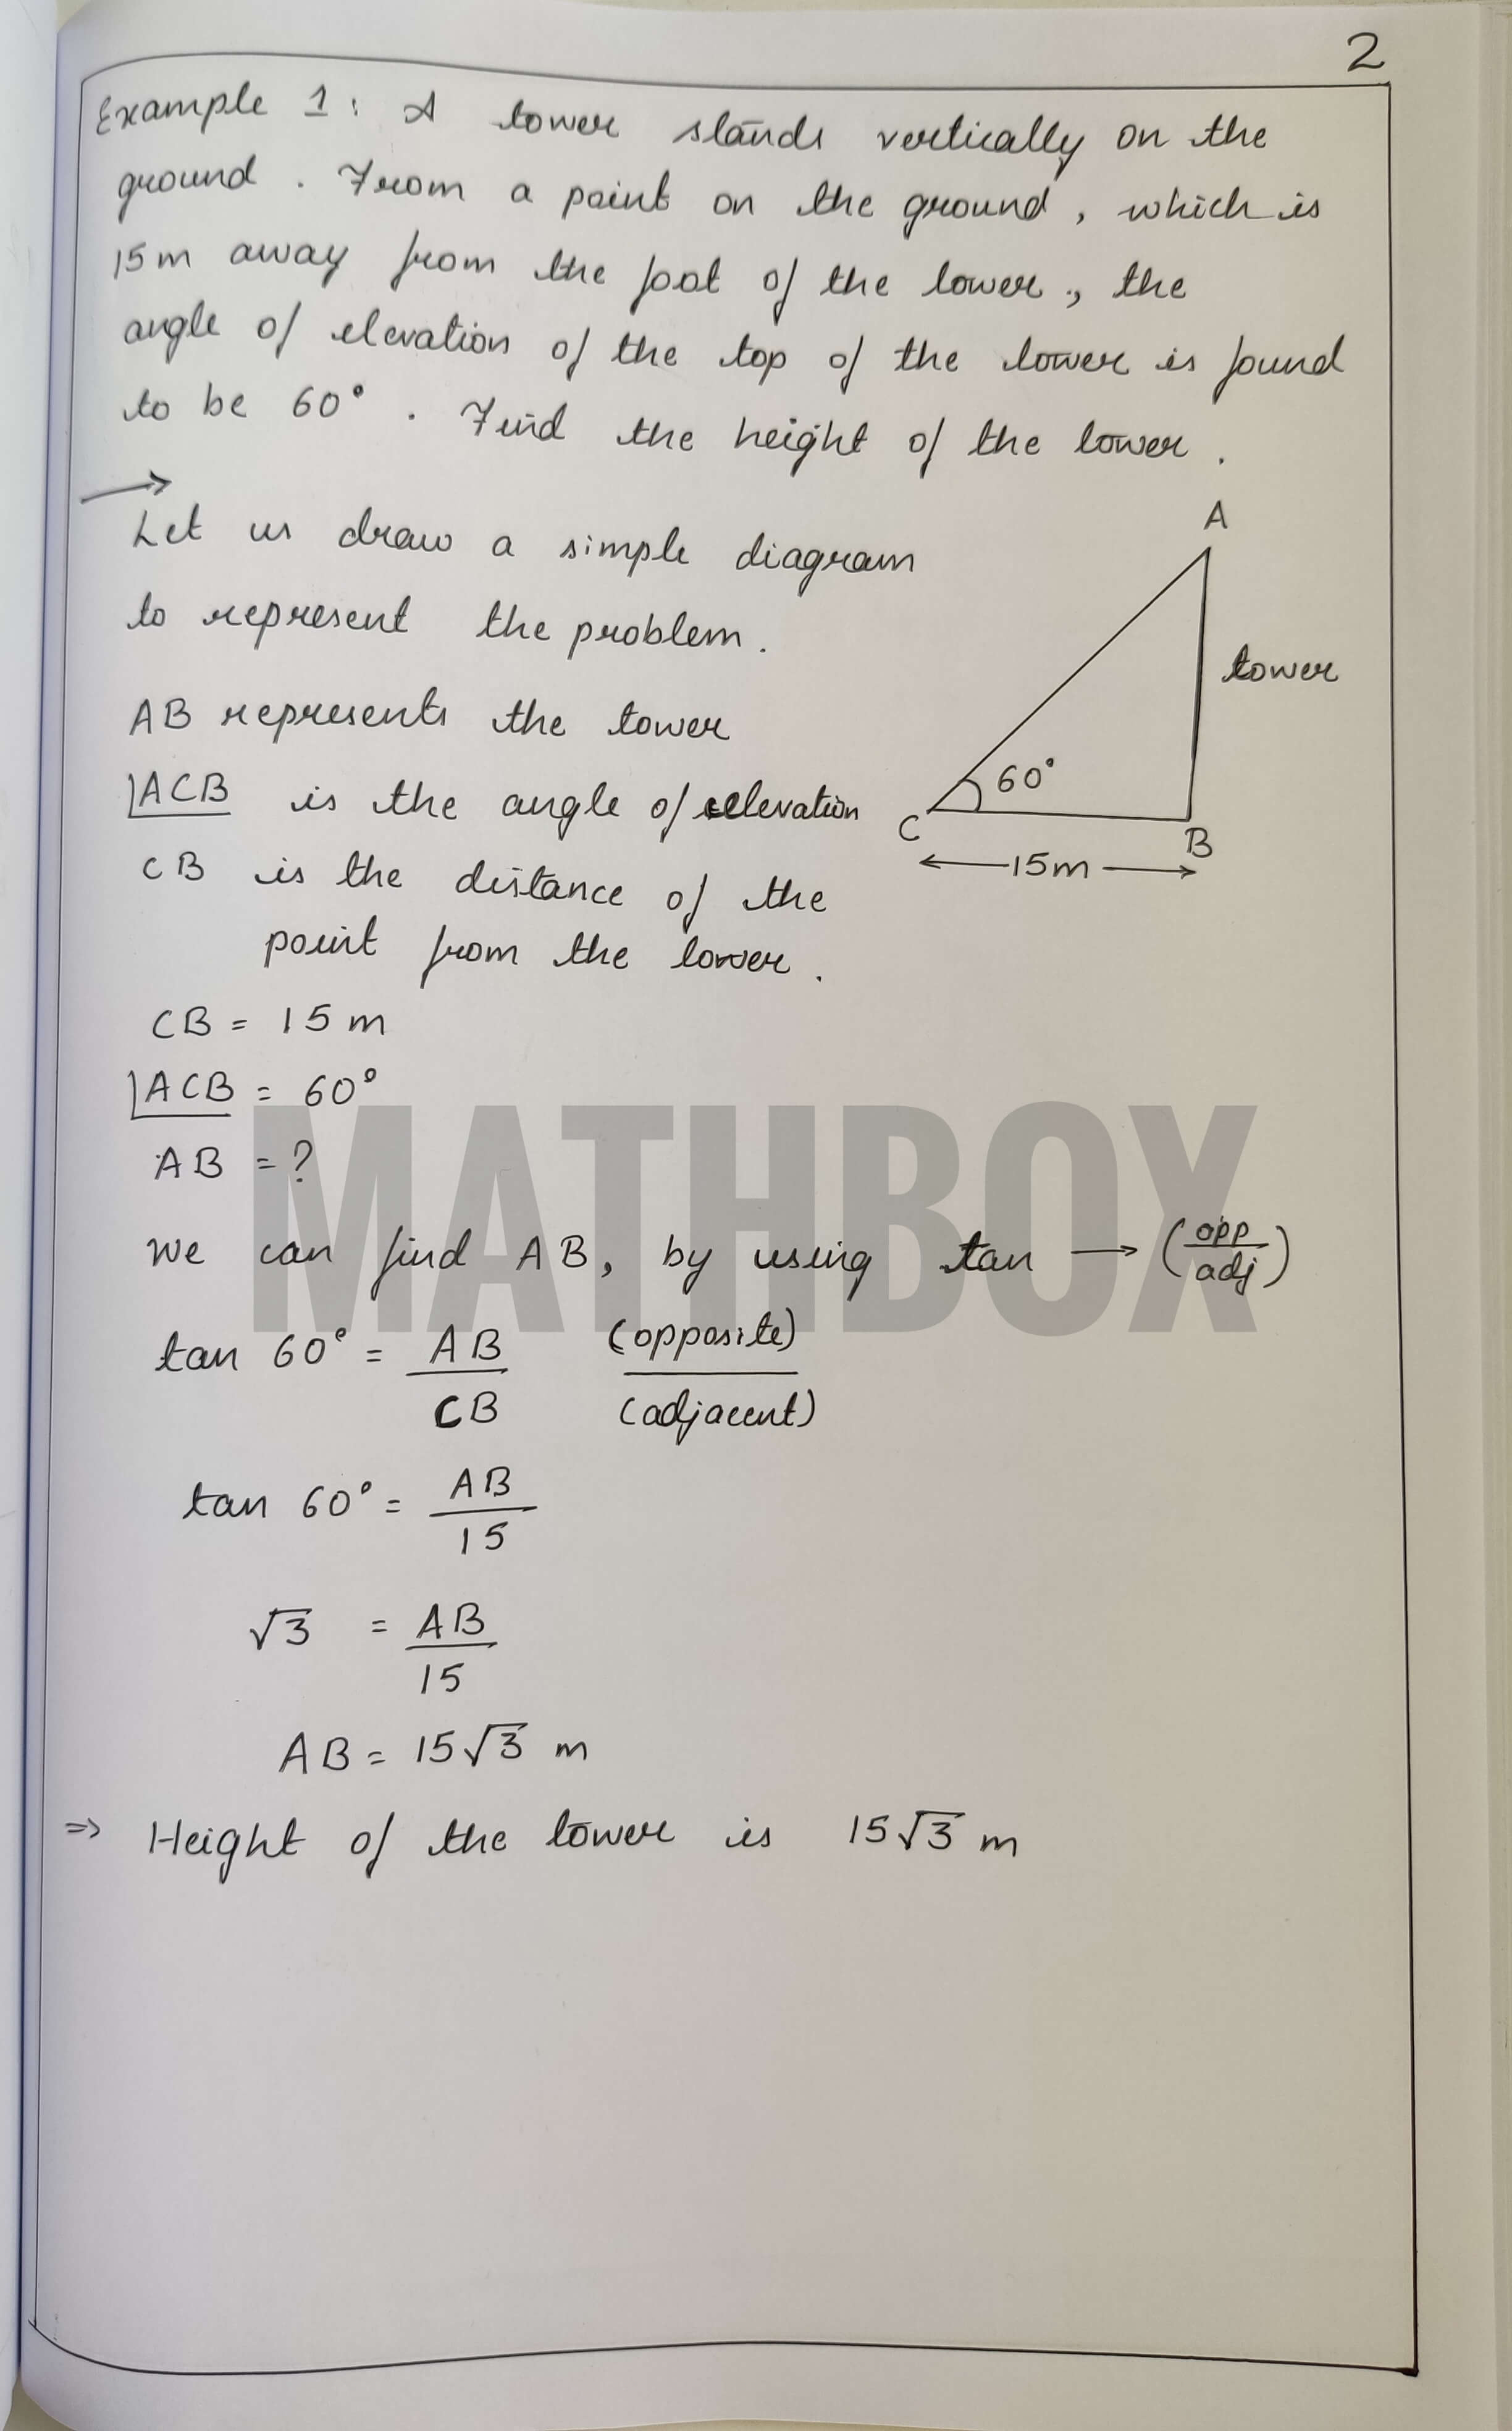 2
Example 1: A tower stands vertically on the
ground. From a point on the ground, which is
15m away from the foot of the tower, the
angle of elevation of the top of the tower is found
to be 60°. Find the height of the tower.
→
Let us draw a simple diagram
to represent the problem.
AB represents the tower
∠ACB is the angle of elevation
CB is the distance of the
point from the tower.
A
tower
60°
C
B
←15m→
CB = 15m
∠ACB = 60°
AB = ?
We can find AB, by using tan → (opp/adj)
tan 60° = AB/CB (opposite)/(adjacent)
tan 60° = AB/15
√3 = AB/15
AB = 15√3 m
⇒ Height of the tower is 15√3 m
MATHBOX